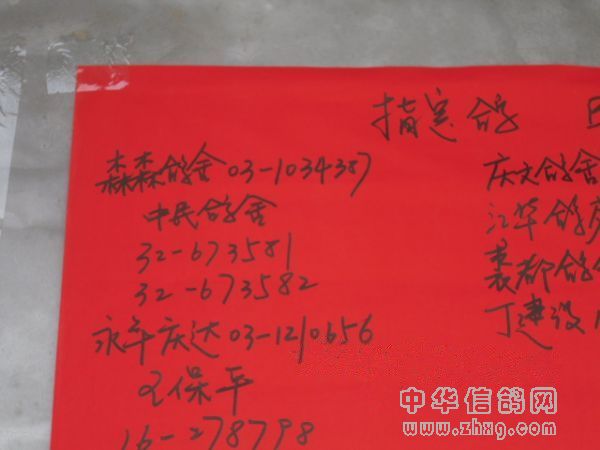 指定鸽
森森鸽舍 03-1034387
中民鸽舍
32-673581
32-673582
永年庆达 03-1210656
王保平
16-278798
庆文鸽舍
江华鸽
襄都鸽舍
丁建设
中华信鸽网
www.zhxg.com